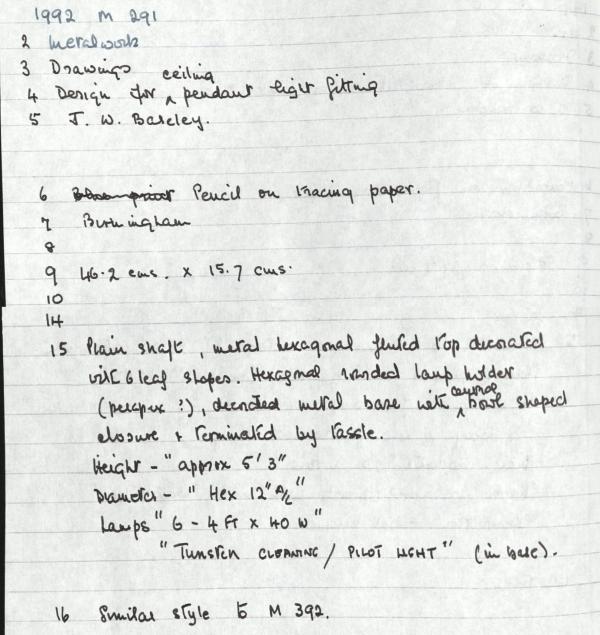 1992 M 291
2 Metalwork
3 Drawings
4 Design for ceiling pendant light fitting
5 J. W. Bareley.
6 Pencil on tracing paper.
7 Birmingham
8
9 46.2 cms. x 15.7 cms.
10
14
15 Plain shaft, metal hexagonal fluted top decorated
with 6 leaf shapes. Hexagonal lamp holder
(perspex ?), decorated metal base with central bowl shaped
closure & terminated by tassle.
Height - "approx 5' 3"
Diameter - " Hex 12" A/C"
Lamps " 6 - 4 FT x 40 W "
"Tunsten CLEANING / PILOT LIGHT" (in base).
16 Similar style to M 392.